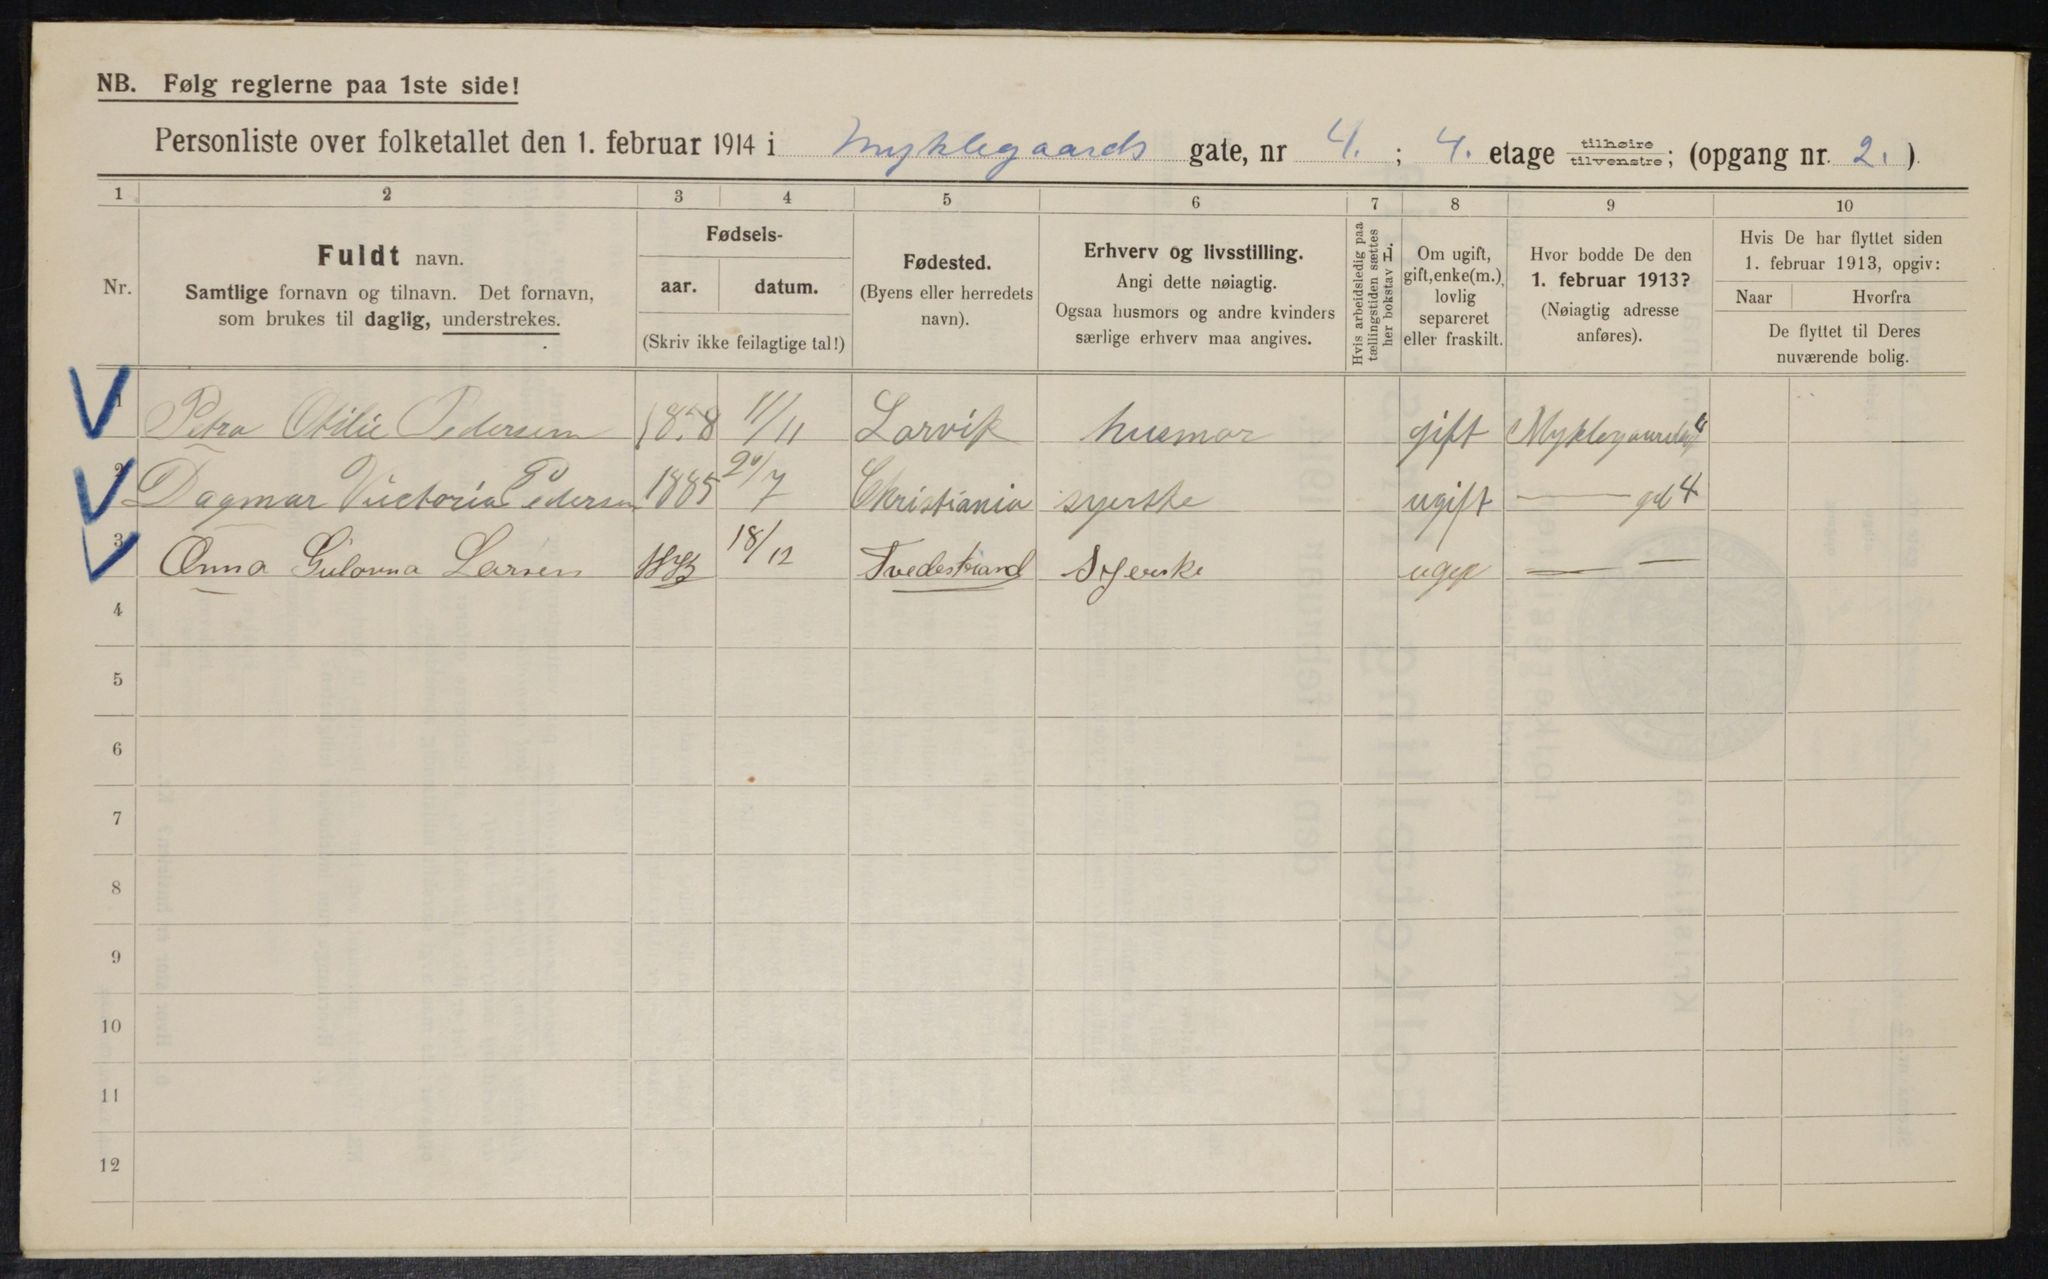 NB. Følg reglerne paa 1ste side!
Personliste over folketallet den 1. februar 1914 i Myklegaards gate, nr 4. ; 4. etage tilhøire tilvenstre; (opgang nr. 2. ).
1 2 3 4 5 6 7 8 9 10
Nr.
Fuldt navn.
Samtlige fornavn og tilnavn. Det fornavn,
som brukes til daglig, understrekes.
Fødsels-
aar. datum.
(Skriv ikke feilagtige tal!)
Fødested.
(Byens eller herredets
navn).
Erhverv og livsstilling.
Angi dette nøiagtig.
Ogsaa husmors og andre kvinders
særlige erhverv maa angives.
Hvis arbeidsledig paa
tællingstiden sættes
her bokstav L.
Om ugift,
gift, enke(m.),
lovlig
separeret
eller fraskilt.
Hvor bodde De den
1. februar 1913?
(Nøiagtig adresse
anføres).
Hvis De har flyttet siden
1. februar 1913, opgiv:
Naar Hvorfra
De flyttet til Deres
nuværende bolig.
1 Petra Otilie Pedersen 1858 11/11 Larvik husmor gift Myklegaardsg 4
2 Dagmar Victoria Pedersen 1885 20/7 Christiania syerske ugift — 4
3 Anna Larsen 18/12 Tvedestrand Syerske — —
4
5
6
7
8
9
10
11
12